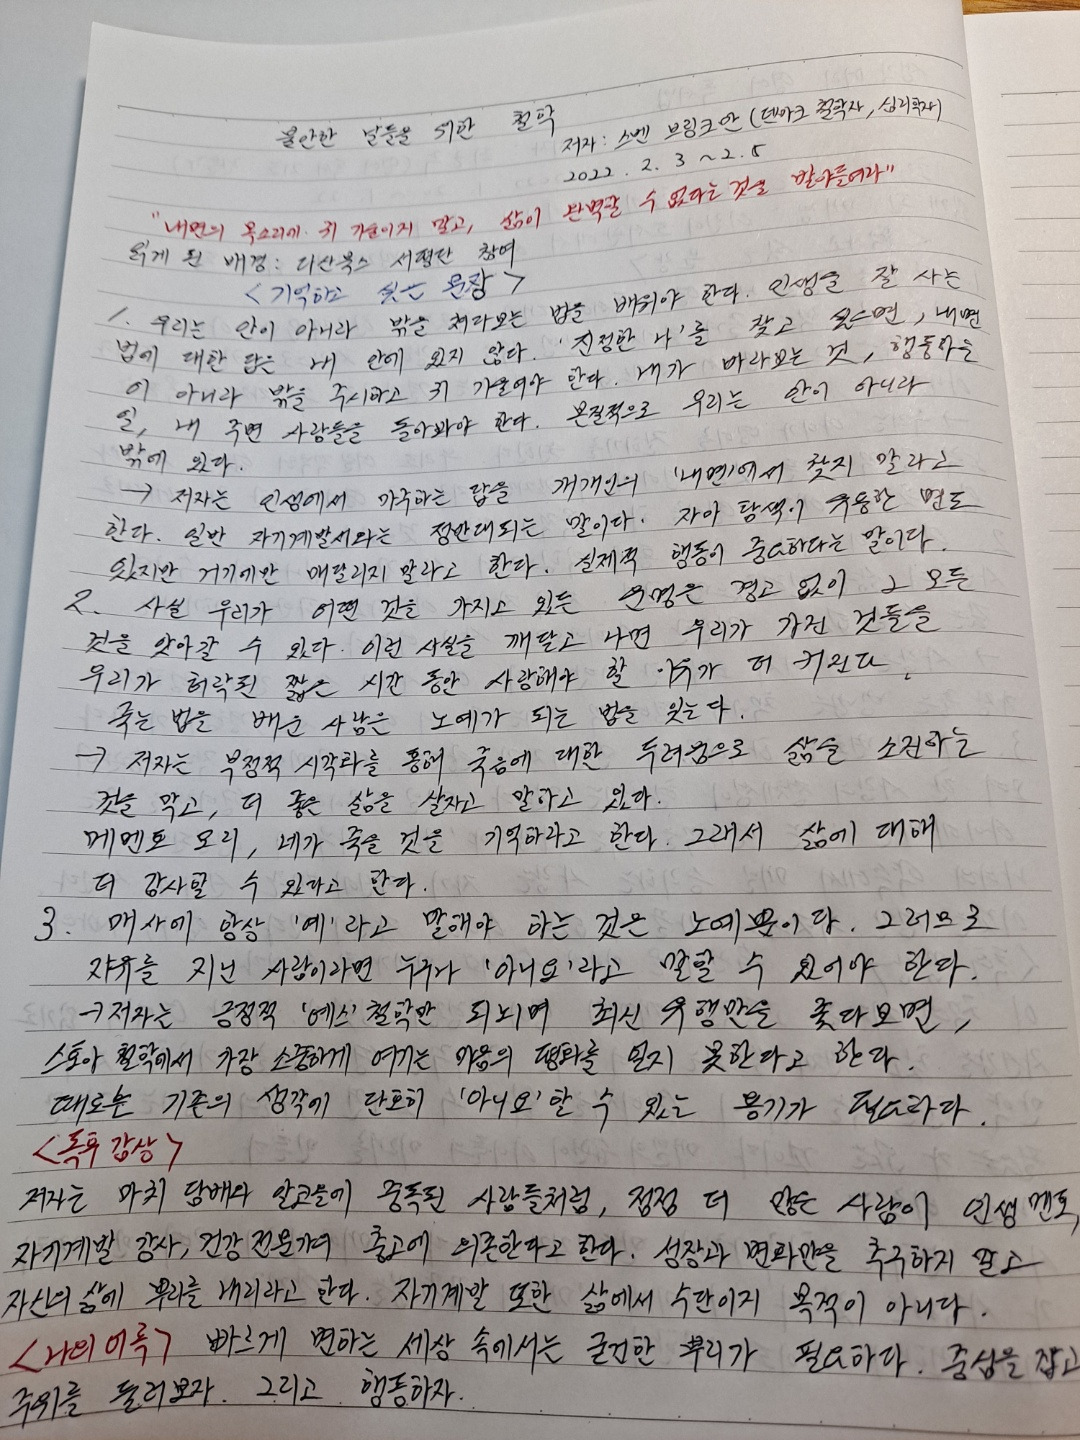 불안한 날들을 위한 철학
저자: 스벤 브링크만 (덴마크 철학자, 심리학자)
2022. 2. 3 ~ 2. 5
"내면의 목소리에 귀 기울이지 말고, 삶이 완벽할 수 없다는 것을 받아들여라"
읽게 된 배경: 다산북스 서평단 참여
<기억하고 싶은 문장>
1. 우리는 안이 아니라 밖을 쳐다보는 법을 배워야 한다. 인생을 잘 사는
법에 대한 답은 내 안에 있지 않다. '진정한 나'를 찾고 싶으면, 내면
이 아니라 밖을 주시하고 귀 기울여야 한다. 내가 바라보는 것, 행동하는
일, 내 주변 사람들을 돌아봐야 한다. 본질적으로 우리는 안이 아니라
밖에 있다.
→ 저자는 인생에서 마주하는 답을 개개인의 '내면'에서 찾지 말라고
한다. 일반 자기계발서와는 정반대되는 말이다. 자아 탐색이 유용한 면도
있지만 거기에만 매달리지 말라고 한다. 실제적 행동이 중요하다는 말이다.
2. 사실 우리가 어떤 것을 가지고 있든 운명은 경고 없이 그 모든
것을 앗아갈 수 있다. 이런 사실을 깨닫고 나면 우리가 가진 것들을
우리가 허락된 짧은 시간 동안 사랑해야 할 이유가 더 커진다.
죽는 법을 배운 사람은 노예가 되는 법을 잊는다.
→ 저자는 부정적 시각화를 통해 죽음에 대한 두려움으로 삶을 소진하는
것을 막고, 더 좋은 삶을 살자고 말하고 있다.
메멘토 모리, 네가 죽을 것을 기억하라고 한다. 그래서 삶에 대해
더 감사할 수 있다고 한다.
3. 매사에 항상 '예'라고 말해야 하는 것은 노예뿐이다. 그러므로
자유를 지닌 사람이라면 누구나 '아니요'라고 말할 수 있어야 한다.
→ 저자는 긍정적 '예스' 철학만 되뇌며 최신 유행만을 좇다보면,
스토아 철학에서 가장 소중하게 여기는 마음의 평화를 얻지 못한다고 한다.
때로는 기존의 생각에 단호히 '아니요' 할 수 있는 용기가 필요하다.
<독후 감상>
저자는 마치 담배와 알코올에 중독된 사람들처럼, 점점 더 많은 사람이 인생 멘토,
자기계발 강사, 건강 전문가의 충고에 의존한다고 한다. 성장과 변화만을 추구하지 말고
자신의 삶에 뿌리를 내리라고 한다. 자기계발 또한 삶에서 수단이지 목적이 아니다.
<나의 어록> 빠르게 변하는 세상 속에서는 굳건한 뿌리가 필요하다. 중심을 잡고
주위를 둘러보자. 그리고 행동하자.